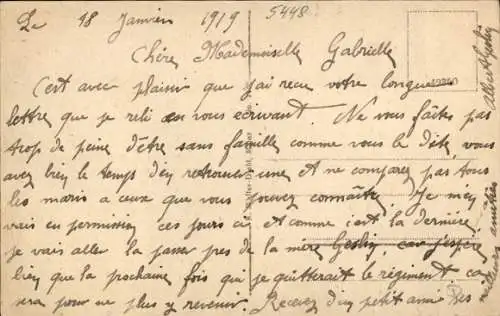 Le 18 Janvier 1919 5448
Chère Mademoiselle Gabrielle
C'est avec plaisir que j'ai recu votre longue
lettre que je reli en vous écrivant. Ne vous faîtes pas
trop de peine d'être sans famille comme vous le dite, vous
avez bien le temps d'en retrouver une, et ne comparez pas tous
les maris a ceux que vous pouvez connaître. Je m'en
vais en permission ces jours ci et comme c'est la dernière
je vais aller la passer pres de la mère Geslin, car j'espère
bien que la prochaine fois qui je quitterait le régiment, ca
sera pour ne plus y revenir. Recevez d'un petit ami Ses
meilleurs amitiés
Albert Geslin